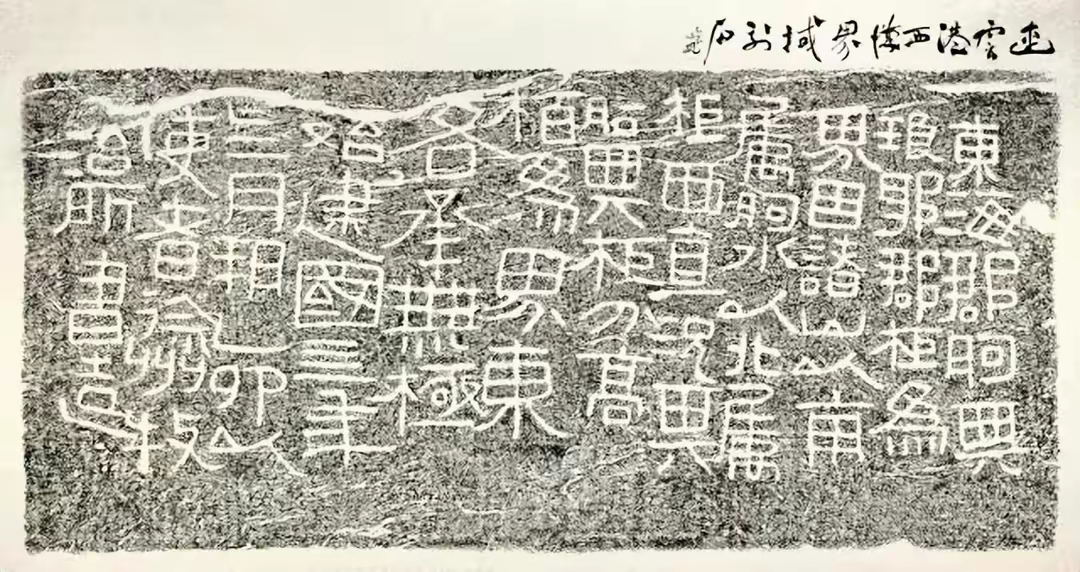 連雲港西界域刻石
東海郡朐與
琅邪郡柜為
界因諸山以南
屬朐水以北屬
柜西直況其
朐與柜分高
栢為界東
各承無極
始建國四年
四月朔乙卯以
使者徐州牧
治所書造